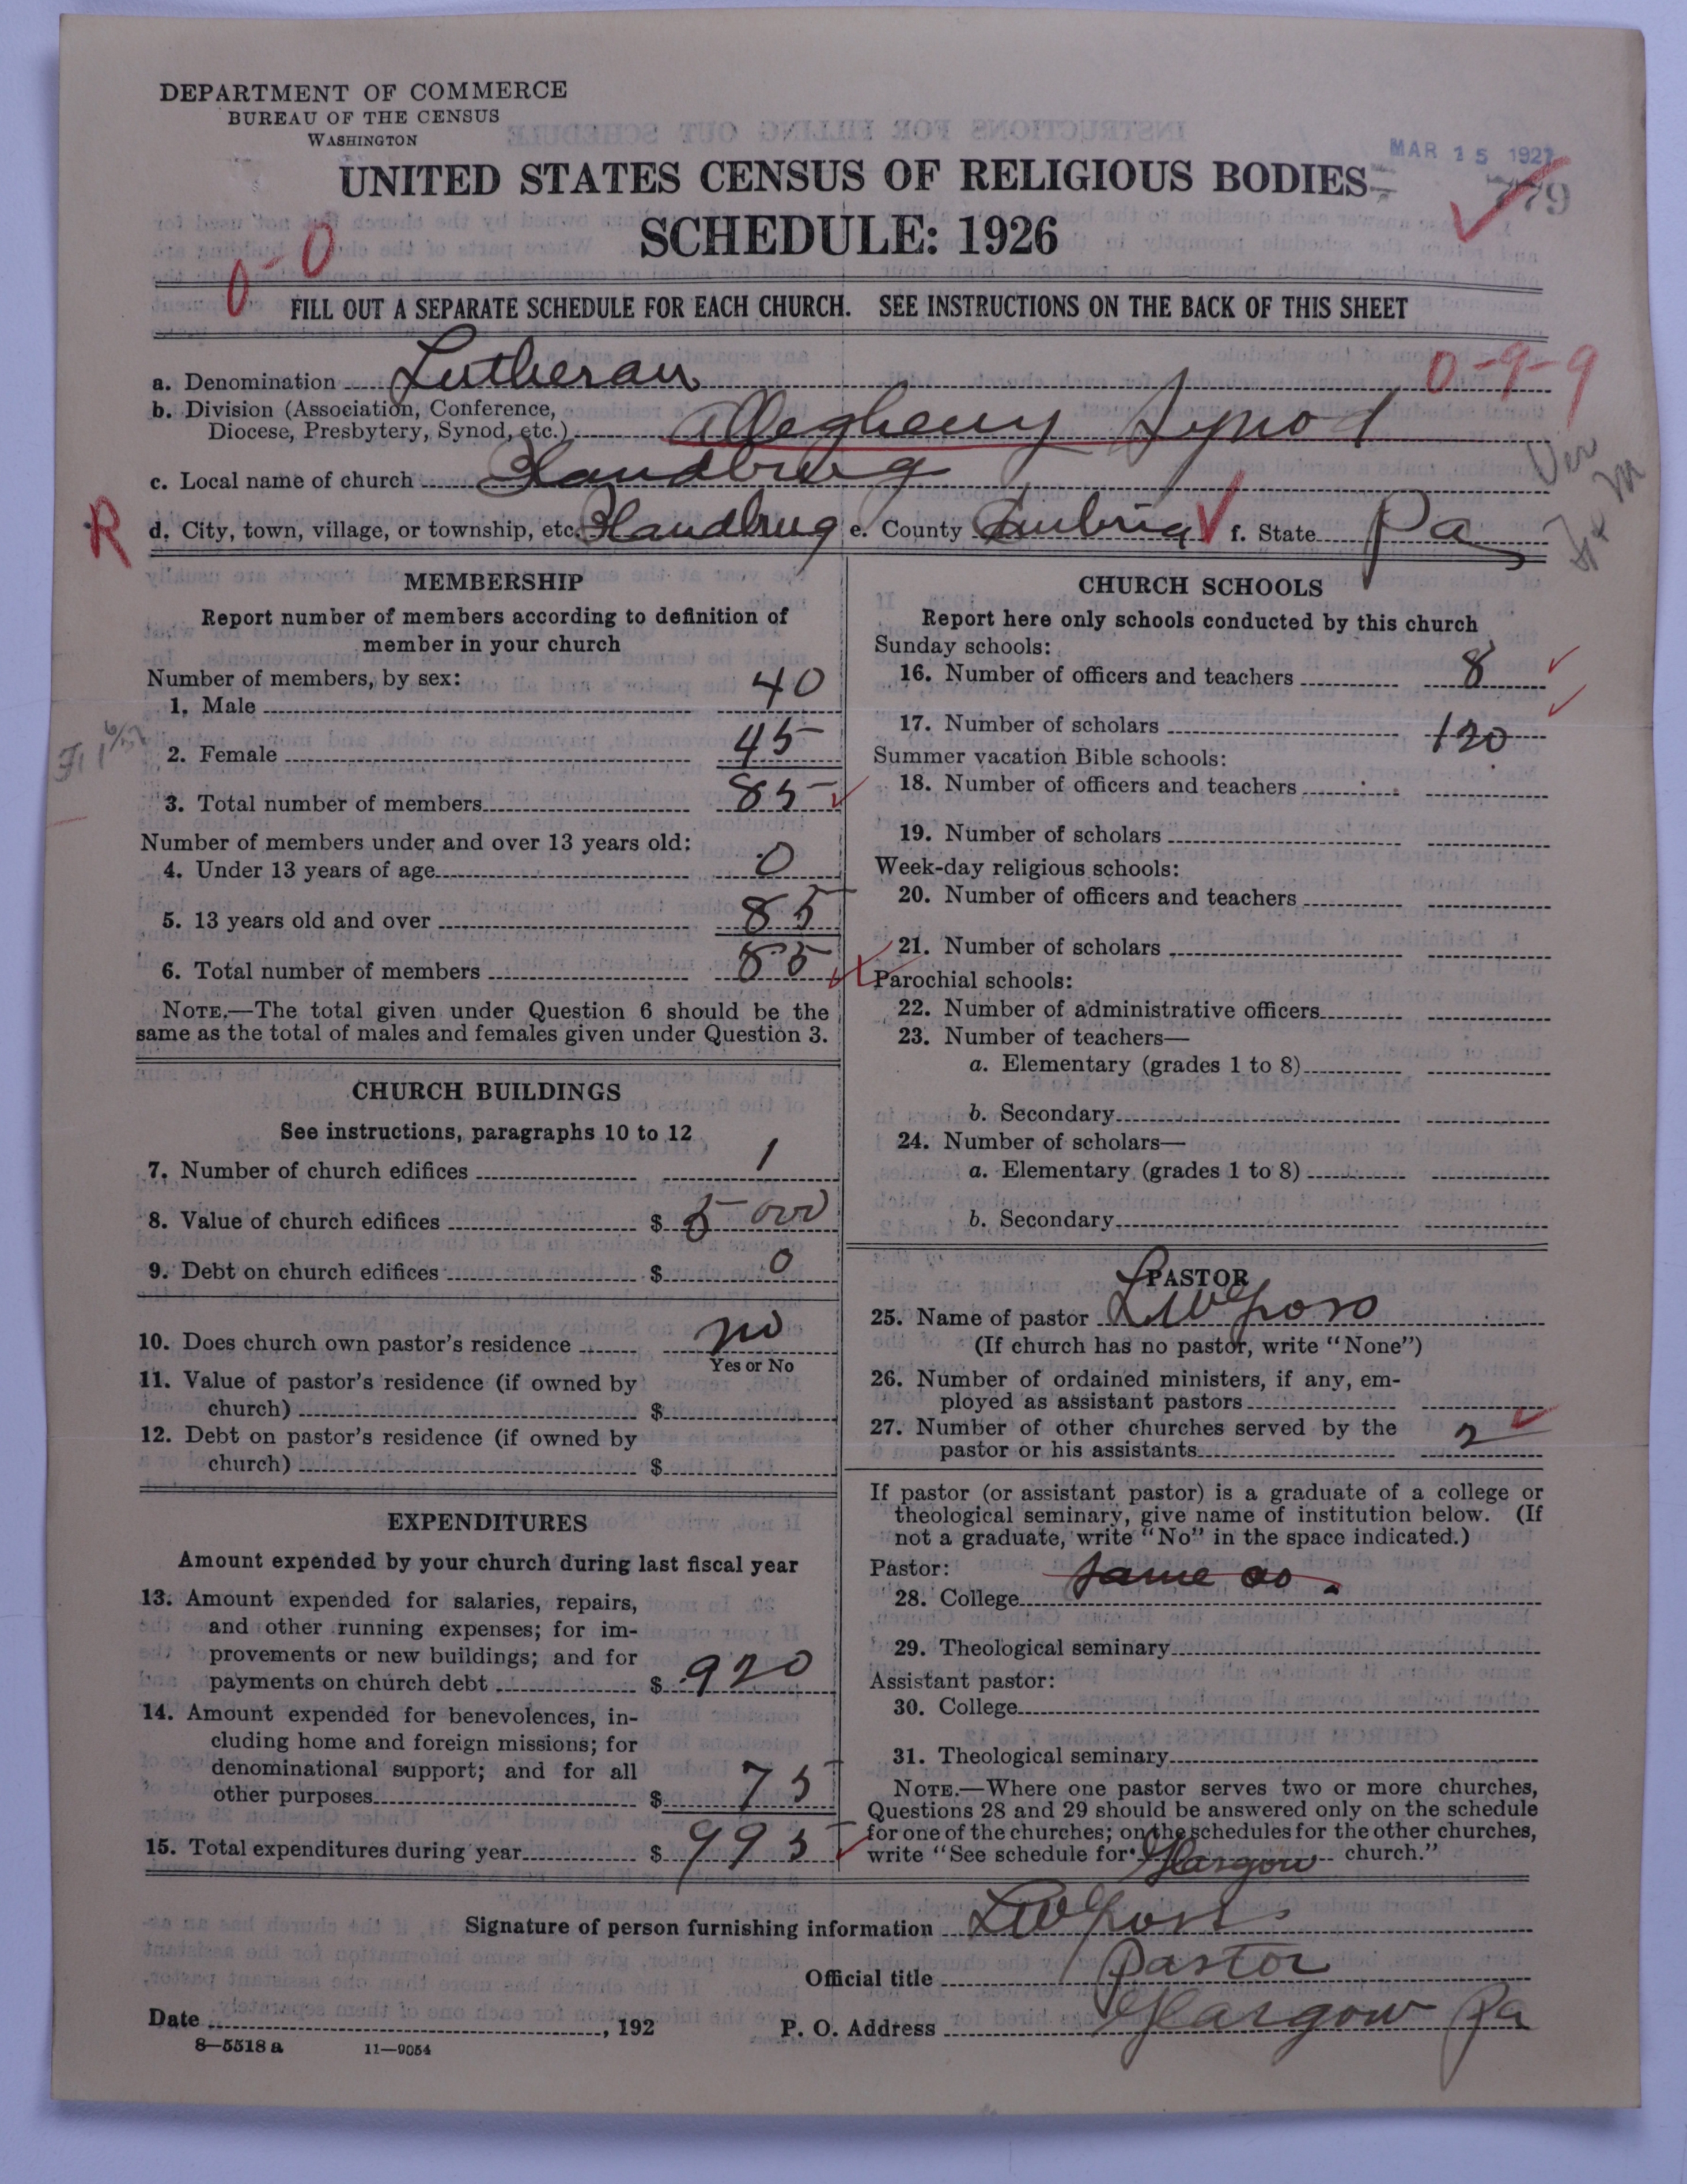 DEPARTMENT OF COMMERCE
BUREAU OF THE CENSUS
WASHINGTON
MAR 15 1927
UNITED STATES CENSUS OF RELIGIOUS BODIES
779
SCHEDULE: 1926
0-0
FILL OUT A SEPARATE SCHEDULE FOR EACH CHURCH. SEE INSTRUCTIONS ON THE BACK OF THIS SHEET
0-9-9
a. Denomination Lutheran
b. Division (Association, Conference,
Diocese, Presbytery, Synod, etc.) Allegheny Synod
c. Local name of church
R
d. City, town, village, or township, etc. e. County Cambria f. State Pa
MEMBERSHIP
Report number of members according to definition of
member in your church
Number of members, by sex:
1. Male 40
2. Female 45
3. Total number of members 85
Number of members under and over 13 years old:
4. Under 13 years of age 0
5. 13 years old and over 85
6. Total number of members 85
NOTE.—The total given under Question 6 should be the
same as the total of males and females given under Question 3.
CHURCH BUILDINGS
See instructions, paragraphs 10 to 12
7. Number of church edifices 1
8. Value of church edifices $ 5000
9. Debt on church edifices $ 0
10. Does church own pastor's residence no
Yes or No
11. Value of pastor's residence (if owned by
church) $
12. Debt on pastor's residence (if owned by
church) $
EXPENDITURES
Amount expended by your church during last fiscal year
13. Amount expended for salaries, repairs,
and other running expenses; for im-
provements or new buildings; and for
payments on church debt $ 920
14. Amount expended for benevolences, in-
cluding home and foreign missions; for
denominational support; and for all
other purposes $ 75
15. Total expenditures during year $ 995
CHURCH SCHOOLS
Report here only schools conducted by this church
Sunday schools:
16. Number of officers and teachers 8
17. Number of scholars 120
Summer vacation Bible schools:
18. Number of officers and teachers
19. Number of scholars
Week-day religious schools:
20. Number of officers and teachers
21. Number of scholars
Parochial schools:
22. Number of administrative officers
23. Number of teachers—
a. Elementary (grades 1 to 8)
b. Secondary
24. Number of scholars—
a. Elementary (grades 1 to 8)
b. Secondary
PASTOR
25. Name of pastor
(If church has no pastor, write "None")
26. Number of ordained ministers, if any, em-
ployed as assistant pastors
27. Number of other churches served by the
pastor or his assistants 2
If pastor (or assistant pastor) is a graduate of a college or
theological seminary, give name of institution below. (If
not a graduate, write "No" in the space indicated.)
Pastor:
28. College same as
29. Theological seminary
Assistant pastor:
30. College
31. Theological seminary
NOTE.—Where one pastor serves two or more churches,
Questions 28 and 29 should be answered only on the schedule
for one of the churches; on the schedules for the other churches,
write "See schedule for Glasgow church."
Signature of person furnishing information
Official title Pastor
Date , 192
P. O. Address Glasgow Pa
8—5518 a 11—9054